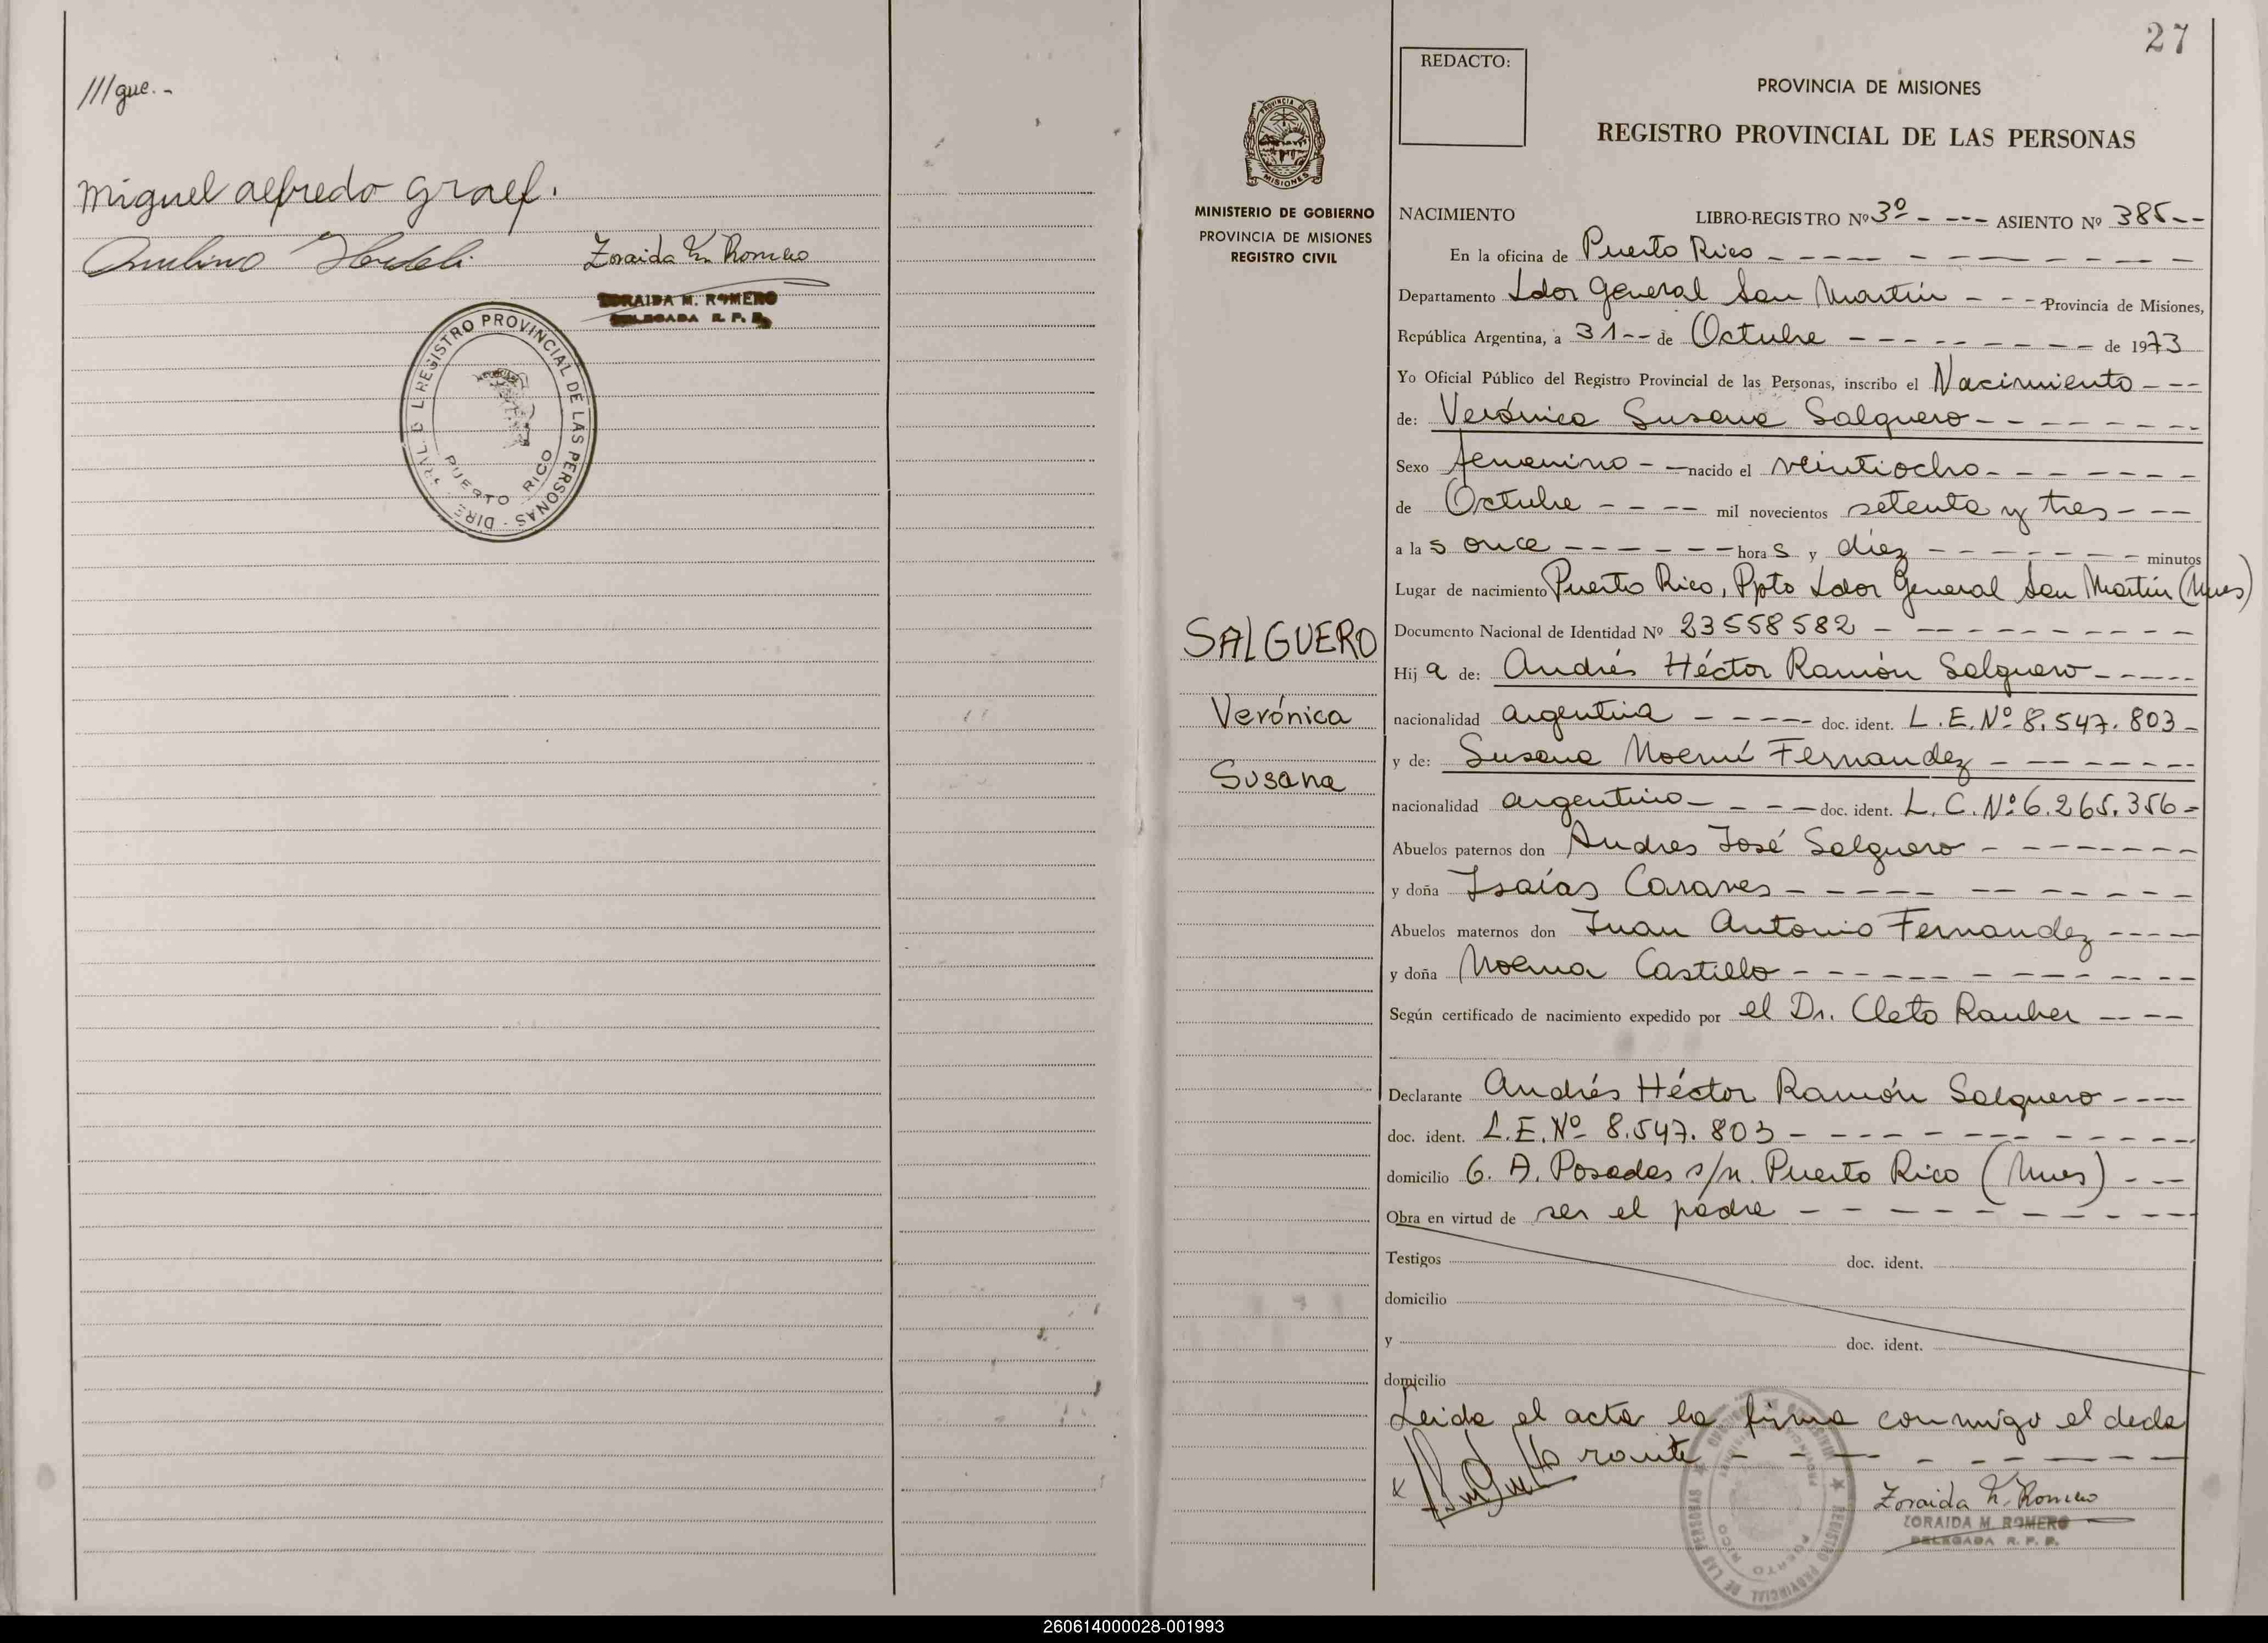 ///gue.-
Miguel Alfredo Graef.
Zoraida M. Romero
ZORAIDA M. ROMERO
DELEGADA R. P. P.
REGISTRO PROVINCIAL DE LAS PERSONAS - DIRE
PUERTO RICO
27
REDACTO:
PROVINCIA DE MISIONES
REGISTRO PROVINCIAL DE LAS PERSONAS
PROVINCIA DE
MISIONES
MINISTERIO DE GOBIERNO
PROVINCIA DE MISIONES
REGISTRO CIVIL
SALGUERO
Verónica
Susana
NACIMIENTO LIBRO-REGISTRO Nº 3º - --- ASIENTO Nº 385--
En la oficina de Puerto Rico
Departamento Ldor General San Martín - - - Provincia de Misiones,
República Argentina, a 31-- de Octubre - - - de 1973
Yo Oficial Público del Registro Provincial de las Personas, inscribo el Nacimiento---
de: Verónica Susana Salguero
Sexo femenino - - nacido el veintiocho
de Octubre - - - - mil novecientos setenta y tres - - -
a las once - - - horas y diez - - - minutos
Lugar de nacimiento Puerto Rico, Dpto Ldor General San Martín (Mnes)
Documento Nacional de Identidad Nº 23558582
Hija de: Andrés Héctor Ramón Salguero
nacionalidad argentina - - - doc. ident. L.E.Nº 8.547.803-
y de: Susana Noemí Fernandez
nacionalidad argentina - - - doc. ident. L.C.Nº 6.265.356-
Abuelos paternos don Andres José Salguero
y doña Isaías Casares
Abuelos maternos don Juan Antonio Fernandez
y doña Noema Castillo
Según certificado de nacimiento expedido por el Dr. Cleto Rauber
Declarante Andrés Héctor Ramón Salguero
doc. ident. L.E.Nº 8.547.803
domicilio G. A. Posadas s/n. Puerto Rico (Mnes)
Obra en virtud de ser el padre
Testigos doc. ident.
domicilio
y doc. ident.
domicilio
Leida el acta la firma conmigo el decla
rante
Zoraida M. Romero
ZORAIDA M. ROMERO
DELEGADA R. P. P.
260614000028-001993